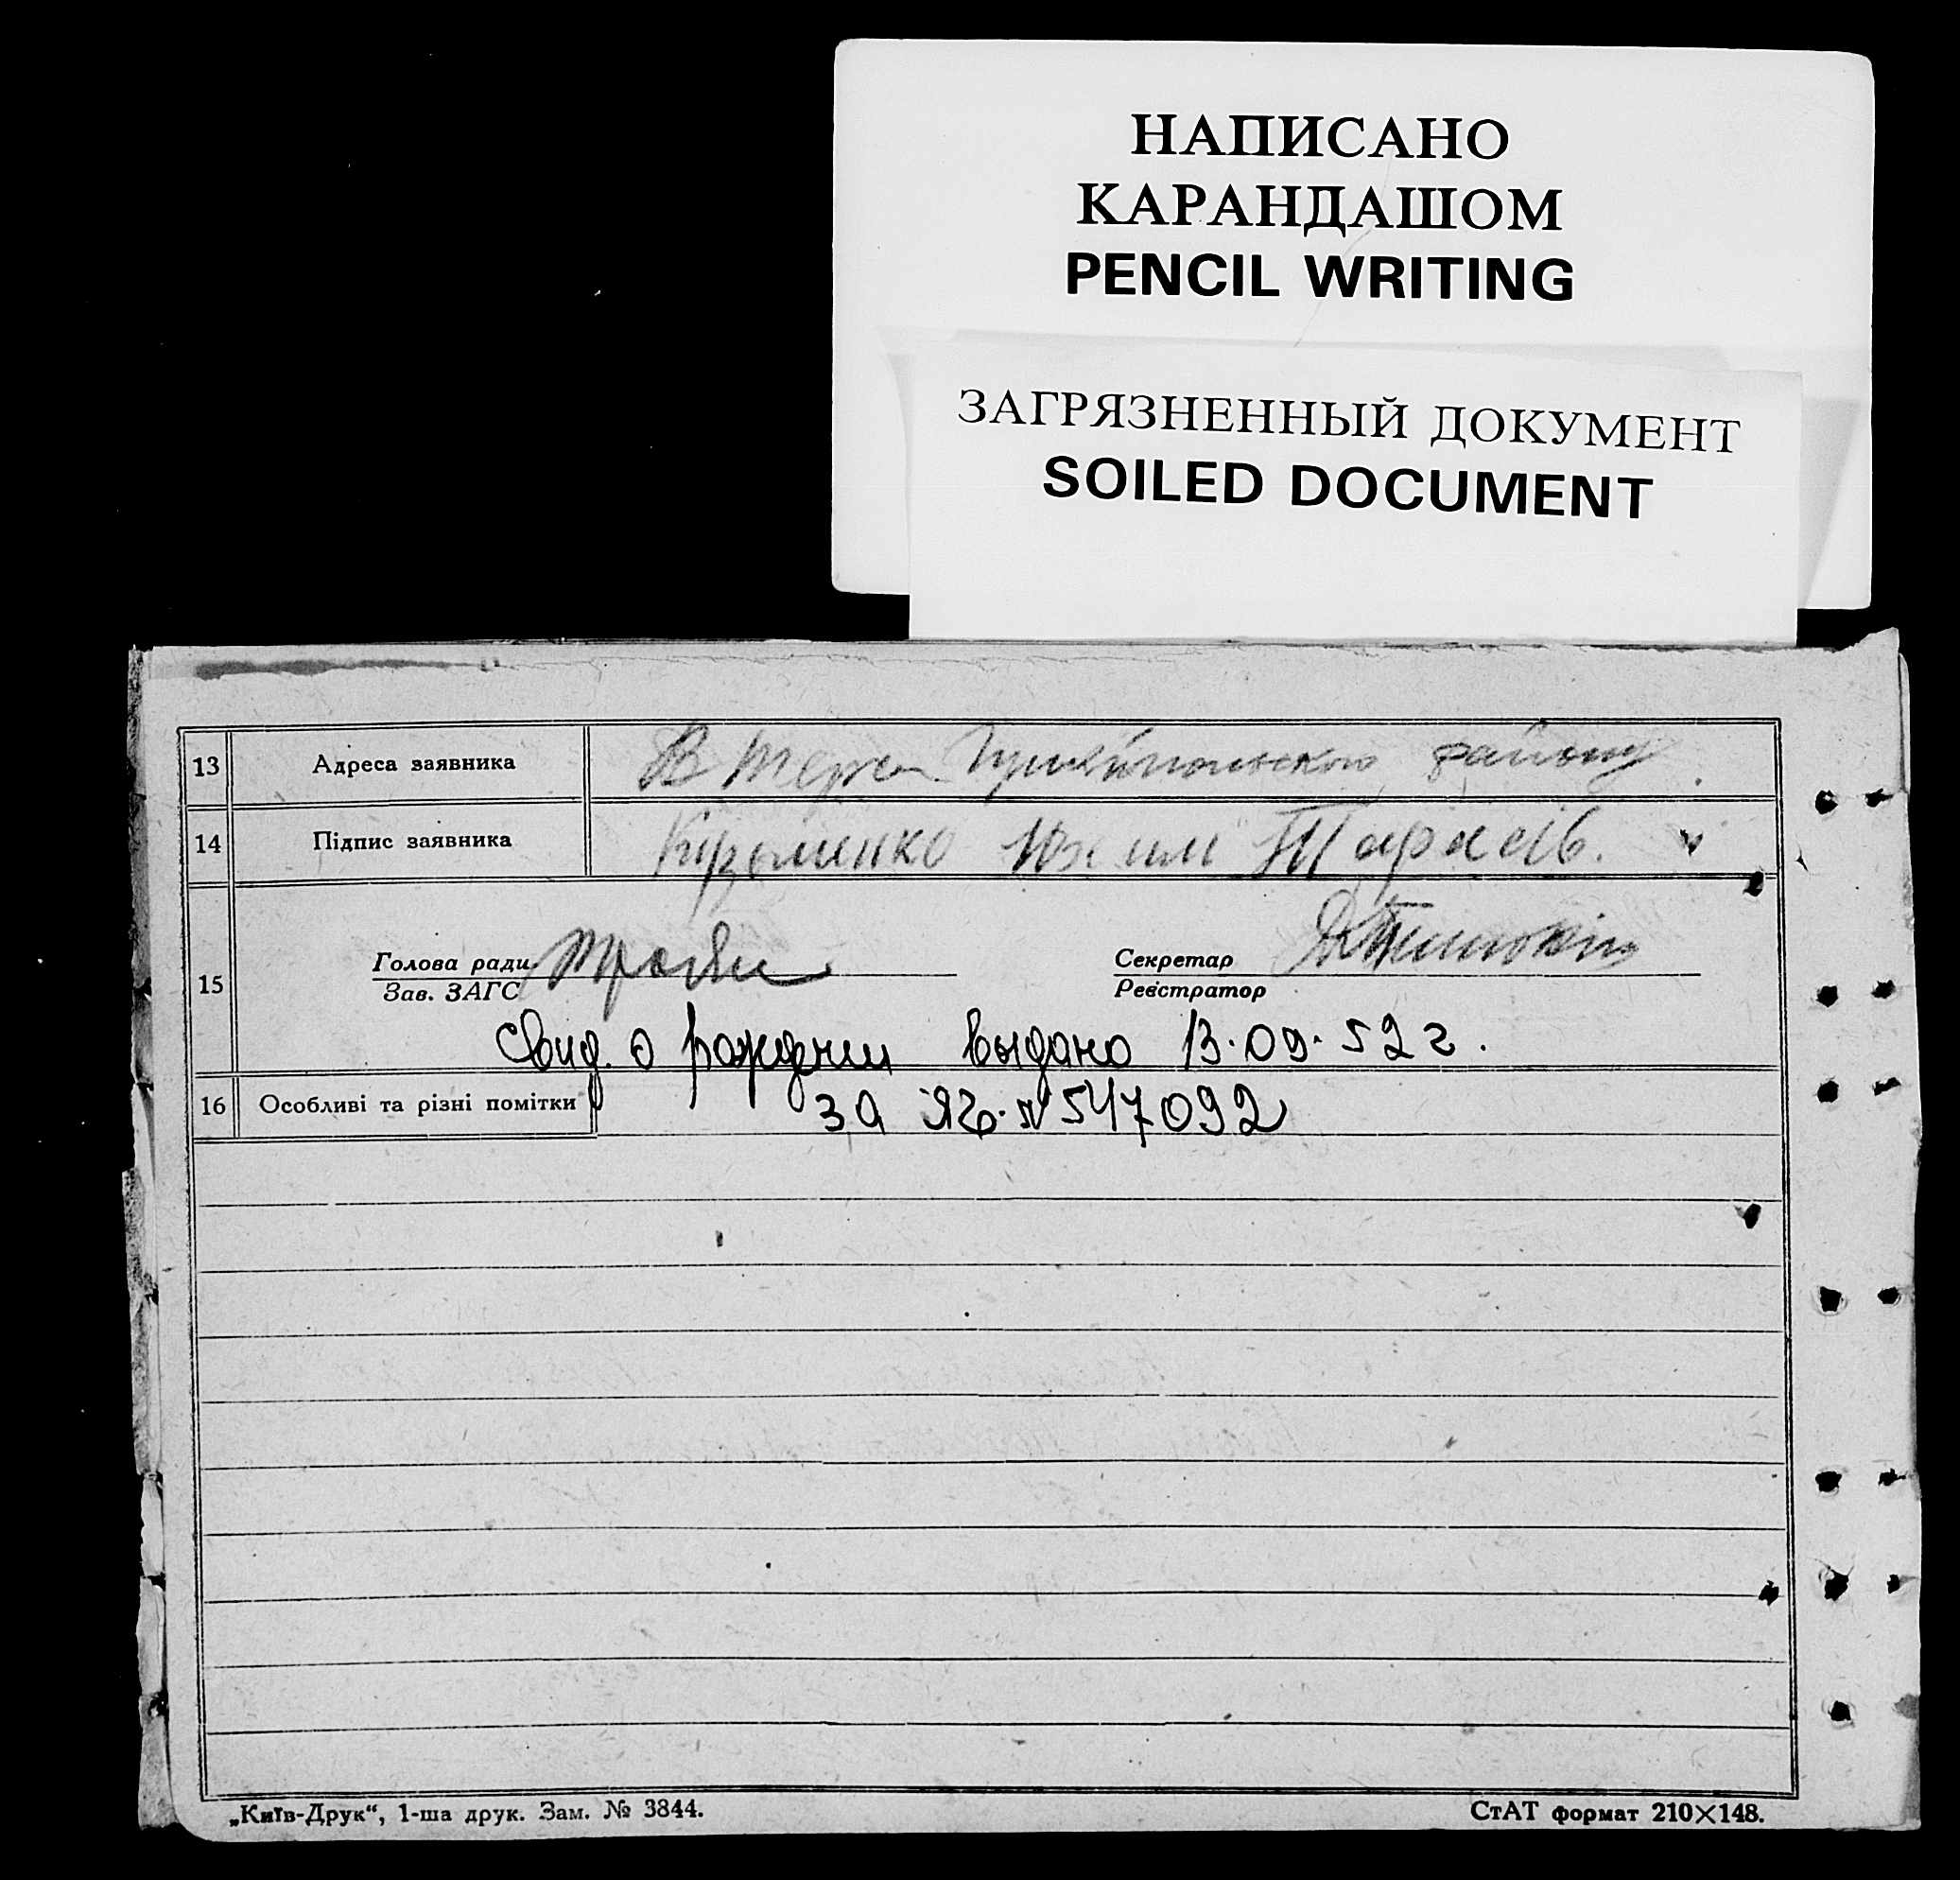 НАПИСАНО
КАРАНДАШОМ
PENCIL WRITING
ЗАГРЯЗНЕННЫЙ ДОКУМЕНТ
SOILED DOCUMENT
13 Адреса заявника району
14 Підпис заявника Тарасів.
Голова ради Секретар
15 Зав. ЗАГС Реєстратор
Свид. о рождении выдано 13.09.52 г.
16 Особливі та різні помітки за № 547092
„Київ-Друк“, 1-ша друк. Зам. № 3844. СтАТ формат 210×148.